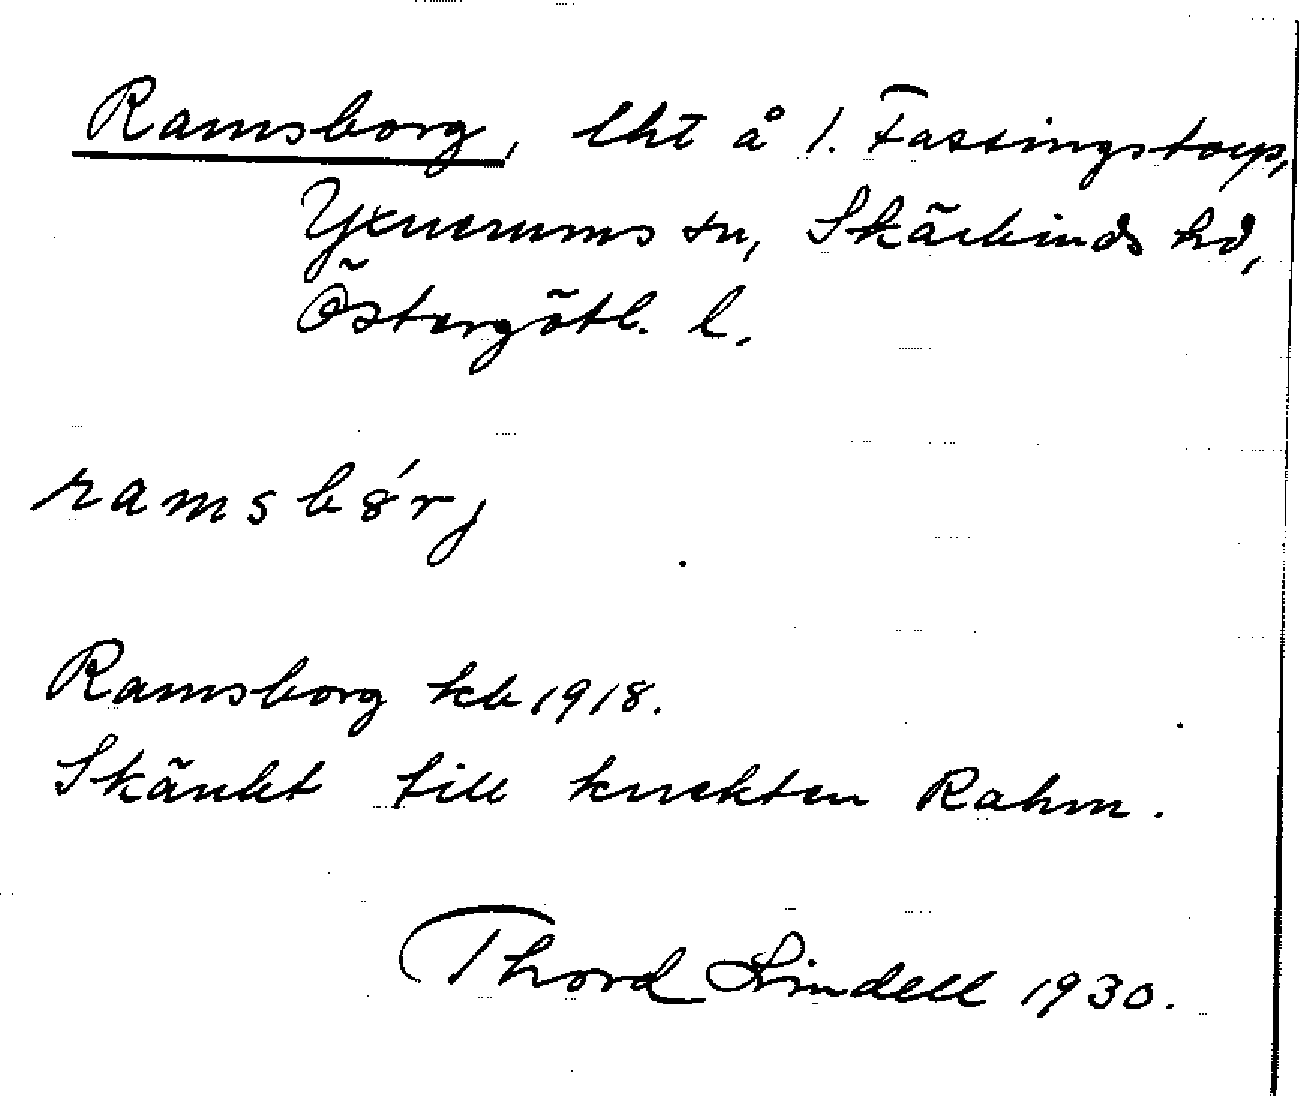 Ramsborg, lht å 1. Fassingstorp,
Yxnerums sn, Skärkinds hd,
Östergötl. l.
ramsbȣ́rj
Ramsborg kb 1918.
Skänkt till knekten Rahm.
Thord Lindell 1930.